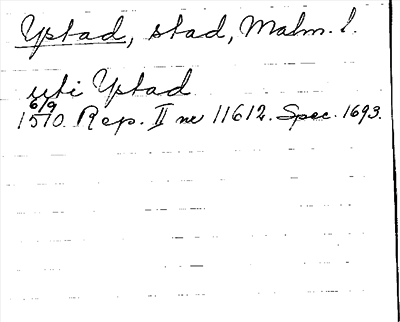 Ystad, stad, Malm. l.
uti Ystad
1510 6/9 Rep. II nr 11612. Spec. 1693.